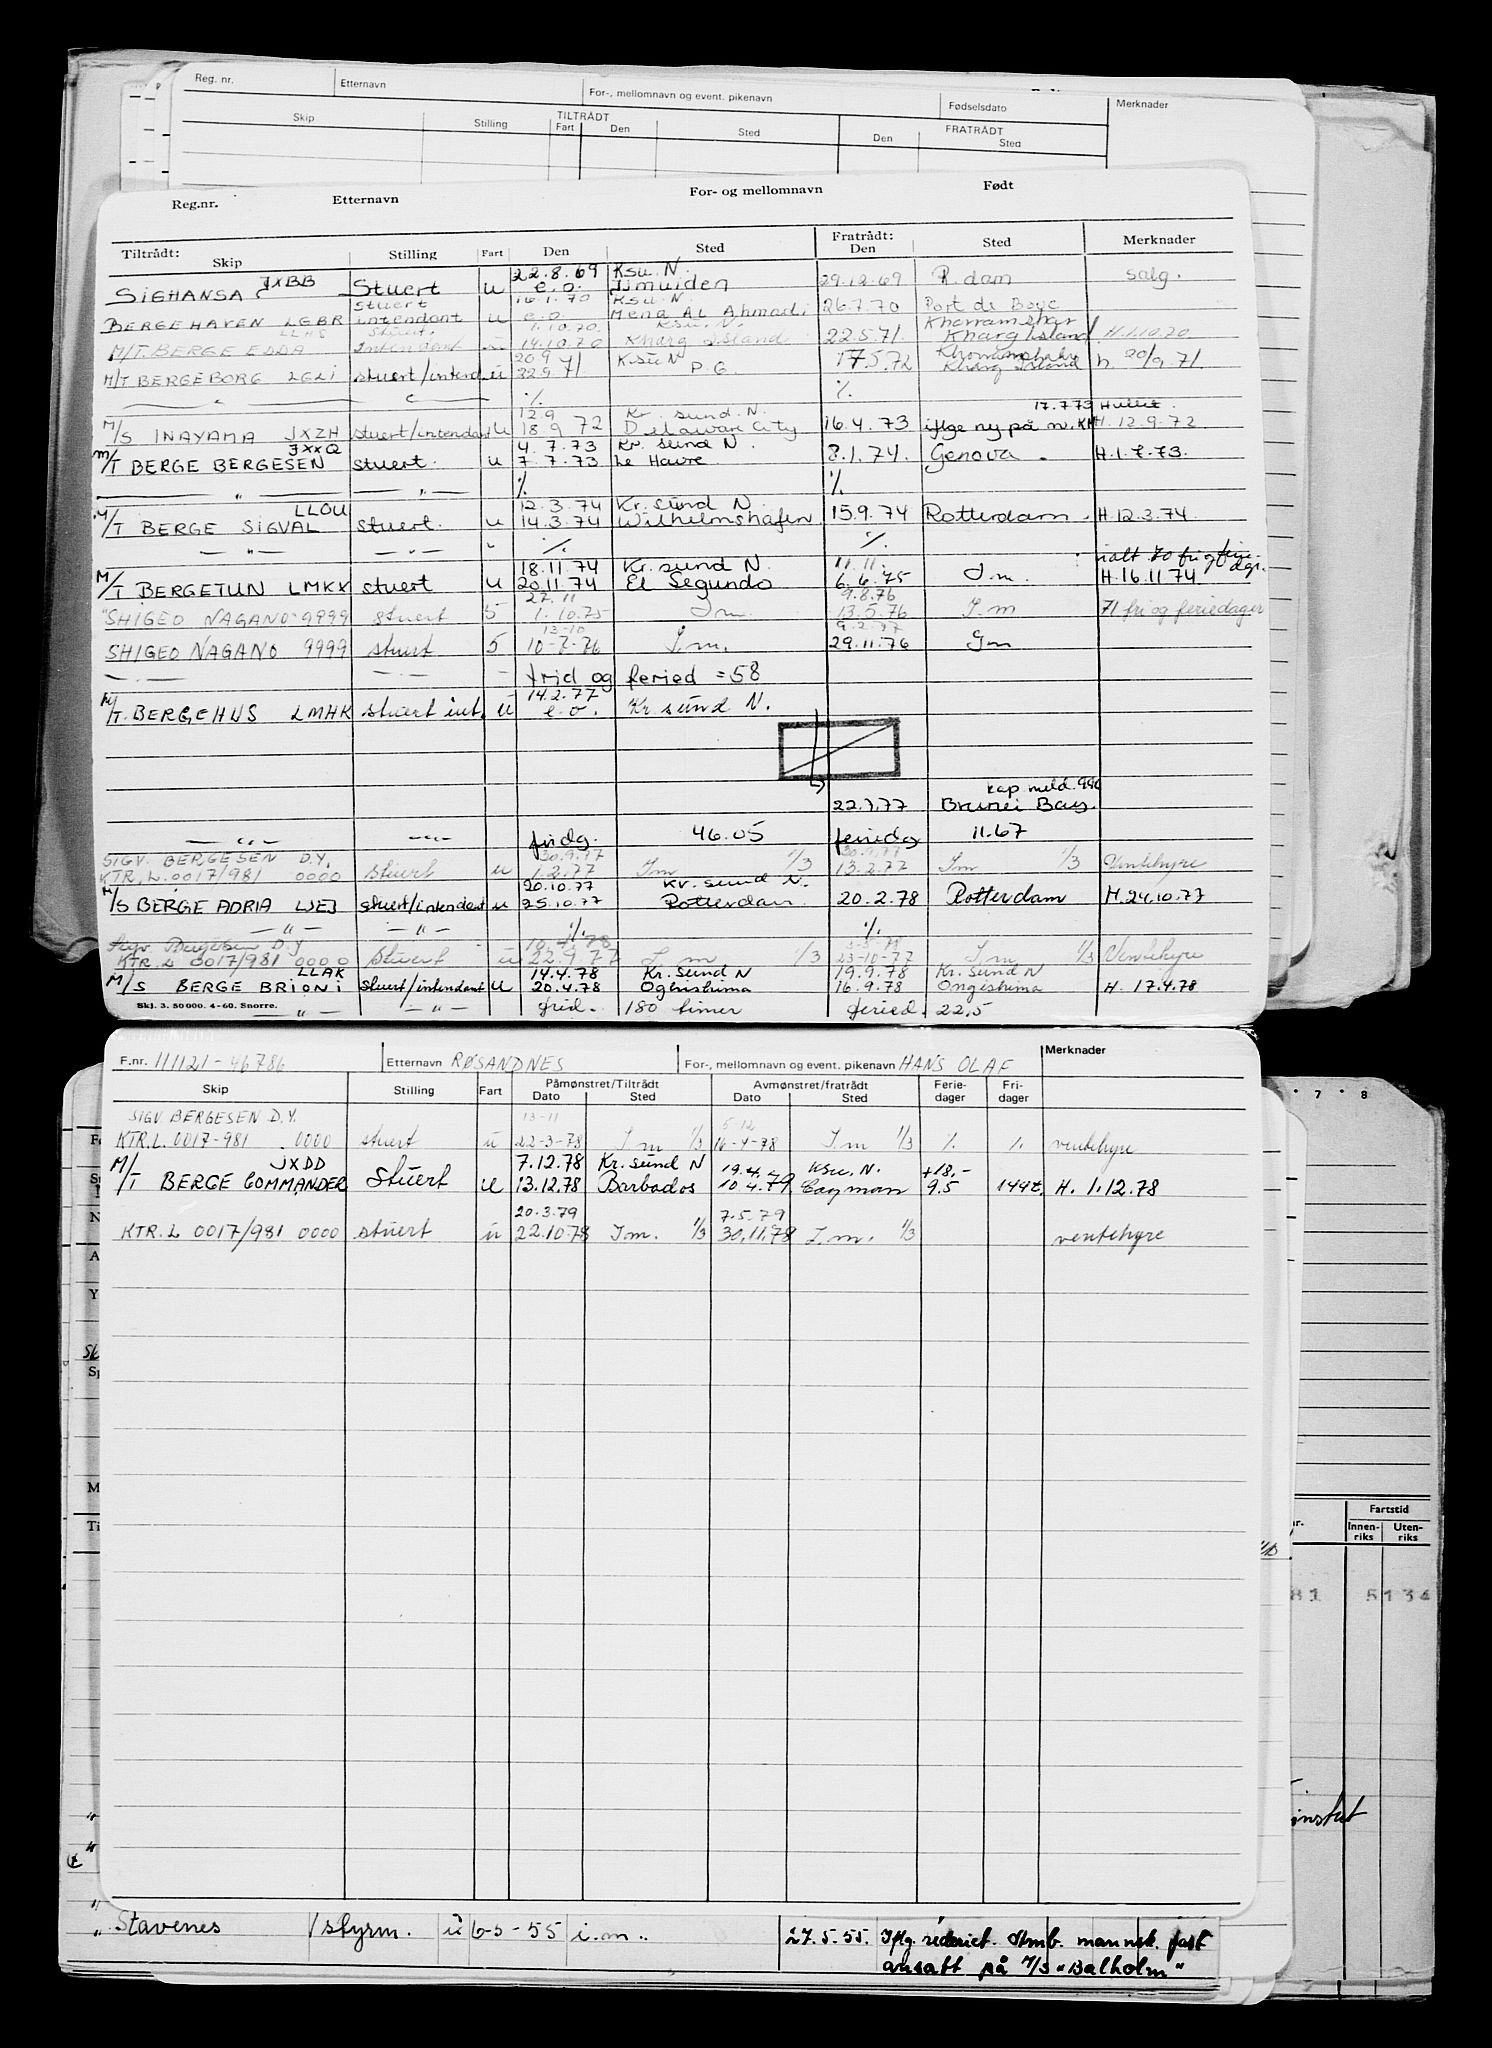 Reg. nr. Etternavn For-, mellomnavn og event. pikenavn Fødselsdato Merknader
Skip Stilling TILTRÅDT Fart Den Sted FRATRÅDT Den Sted
Reg.nr. Etternavn For- og mellomnavn Født
Tiltrådt: Skip Stilling Fart Den Sted Fratrådt: Den Sted Merknader
JXBB 22.8.69 Ksu. N.
SIGHANSA Stuert u e.o. Ijmuiden 29.12.69 R.dam salg.
stuert 16.1.70 Ksu. N.
BERGEHAVEN LGBR intendant u e.o. Mena Al Ahmadi 26.7.70 Port de Bouc
LLHS stuert. 1.10.70. Ksu. N. Khorramshar
M/T. BERGE EDDA intendant u 14.10.70 Kharg Island 22.5.71. Kharg Island H.1.10.70
20 9 Ksu N
M/T BERGEBORG LGLI stuert/intend. u 22 9 71 P.G. 17.5.72 Kharg Island h. 20/9. 71.
— " — — " — % %
12.9 Kr. sund. N. 17.7 73 Hullet.
M/S INAYAMA JXZH stuert/intendant u 18 9 72 Delaware City 16.4.73 iflge ny på m. KH H. 12.9.72
JXXQ 4.7.73 Kr. sund N.
M/T BERGE BERGESEN stuert. u 7.7.73 Le Havre. 8.1.74. Genova. H.1.7.73.
— " — — " — % %
LLOU 12.3.74 Kr. sund N.
M/T BERGE SIGVAL stuert. u 14.3.74 Wilhelmshafen 15.9.74 Rotterdam. H.12.3.74.
— " — — " — " % %
18.11 74 Kr. sund N. 11.11.
M/T BERGETUN LMKX stuert u 20.11 74 El Segundo 6.6.75 I m. H.16.11 74
27.11 9.8.76
"SHIGEO NAGANO" 9999 stuert 5 1.10.75 I m. 13.5.76 I. m 71 fri og feriedager
13-10 9.2.77
SHIGEO NAGANO 9999 stuert 5 10-7-76 I. m. 29.11.76 I m
— " — — " — - frid og feried = 58
14.2.77
M/T. BERGEHUS LMHK stuert int. u e.o. Kr. sund N.
kap. meld.
22.7.77 Brunei Bay.
— " — — " — fridg. 46.05 feriedg 11.67
SIGV. BERGESEN D.Y. 30.9.77 30.9.77
KTR. L. 0017/981 0000 stuert u 1.2.77 I m 1/3 13.2.77 I m 1/3 Ventehyre
20.10.77 Kr. sund N.
M/S BERGE ADRIA LJEJ stuert/intendant u 25.10.77 Rotterdam. 20.2.78 Rotterdam H.24.10.77
— " — — " — % %
Sigv. Bergesen D.Y 10.4.78
KTR. L 0017/981 0000 stuert u 22.9.77 I m 1/3 23-10-77 I m 1/3 Ventehyre
LLAK 14.4.78 Kr. Sund N 19.9.78 Kr. Sund N
M/S BERGE BRIONI Stuert/intendant u 20.4.78 Oginishima 16.9.78 Ongishima H. 17.4.78
Skj. 3. 50 000. 4-60. Snorre. — " — — " — frid. 180 timer feried. 22.5
F.nr. 111121-46786 Etternavn RØSANDNES For-, mellomnavn og event. pikenavn HANS OLAF Merknader
Skip Stilling Fart Påmønstret/Tiltrådt Dato Sted Avmønstret/fratrådt Dato Sted Ferie-dager Fri-dager
SIGV BERGESEN D.Y. 13-11 5.12
KTR.L. 0017-981 0000 stuert u 22-3-78 I m 1/3 16-4-78 I. m 1/3 % % ventehyre
JXDD 7.12.78 Kr. sund N 19.4. Ksu. N. +18,-
M/T BERGE COMMANDER Stuert u 13.12.78 Barbados 10.4.79 Cayman 9.5 144t. H. 1.12.78
20.3.79 7.5.79
KTR. L 0017/981 0000 stuert u 22.10.78 I m. 1/3 30.11.78 I. m. 1/3 ventehyre
Fartstid
Innen-riks Uten-riks
81 5134
Stavenes 1 styrm. u 6-5-55 i.m. 27.5.55. Iflg. rederiet. Omb. mannsk. fast
ansatt på M/S "Balholm"